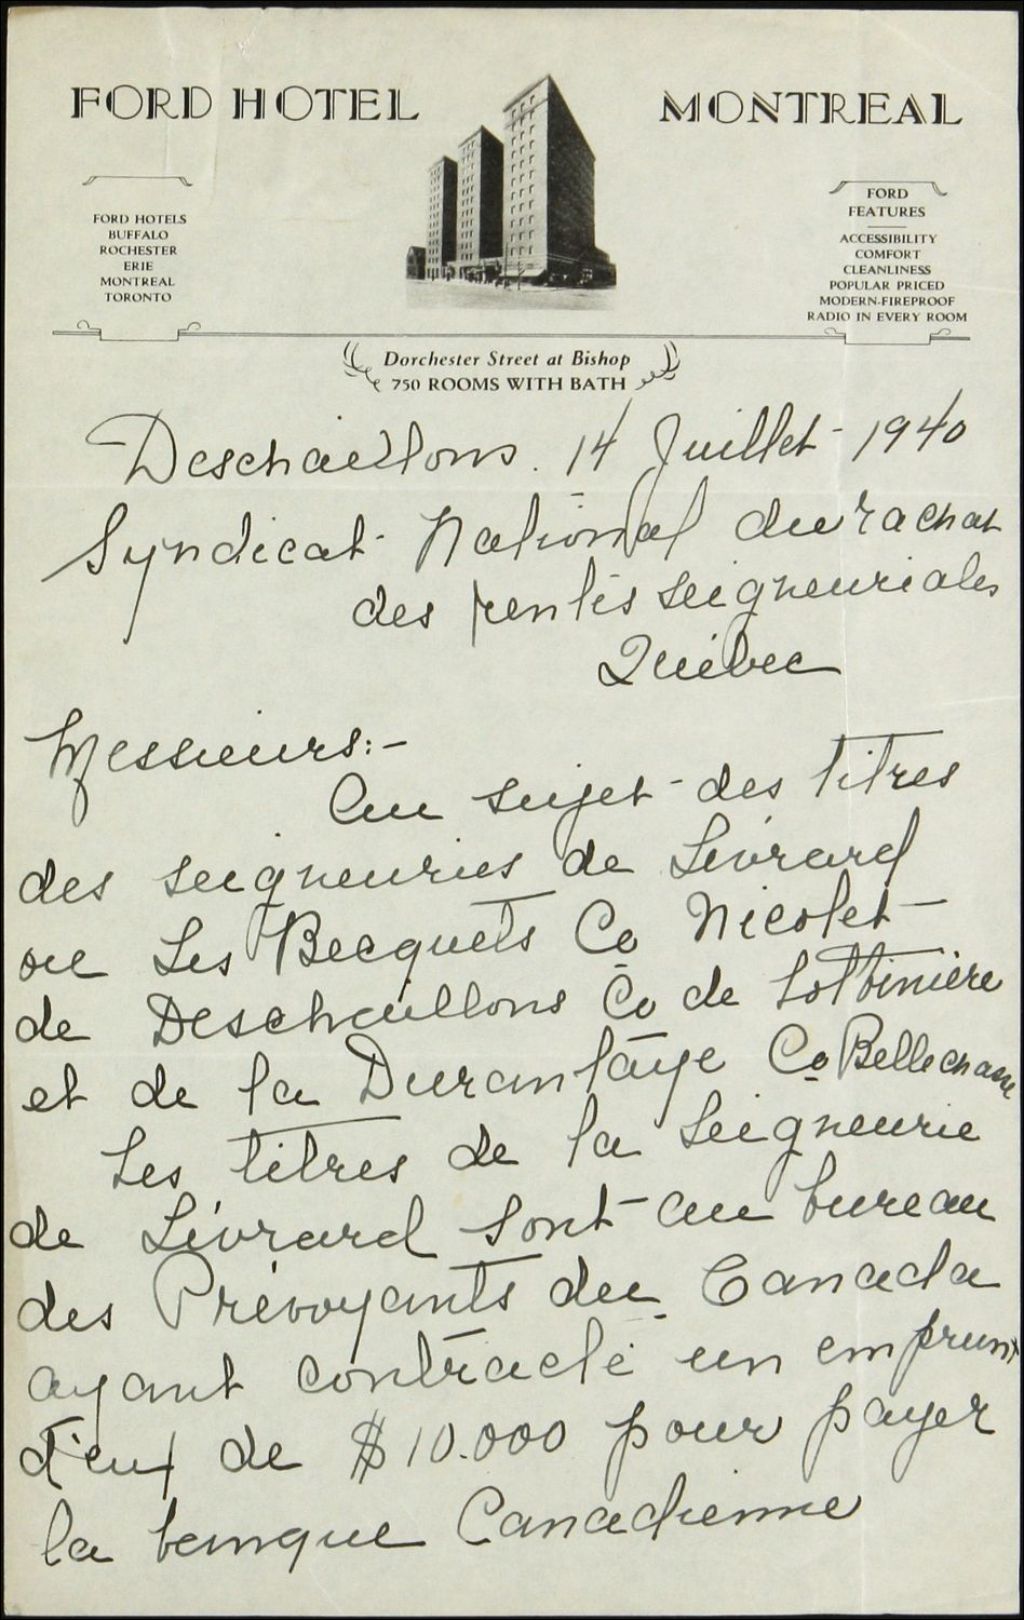 FORD HOTEL MONTREAL
FORD HOTELS
BUFFALO
ROCHESTER
ERIE
MONTREAL
TORONTO
FORD
FEATURES
ACCESSIBILITY
COMFORT
CLEANLINESS
POPULAR PRICED
MODERN-FIREPROOF
RADIO IN EVERY ROOM
Dorchester Street at Bishop
750 ROOMS WITH BATH
Deschaillons. 14 Juillet - 1940
Syndicat National du rachat
des rentes seigneuriales
Québec
Messieurs:-
Au sujet des titres
des seigneuries de Livrard
ou Les Becquets Co Nicolet
de Deschaillons Co de Lotbinière
et de la Durantaye Co Bellechasse
Les titres de la Seigneurie
de Livrard sont au bureau
des Prévoyants du Canada
ayant contracté un emprunt
d'eux de $10.000 pour payer
la banque Canadienne